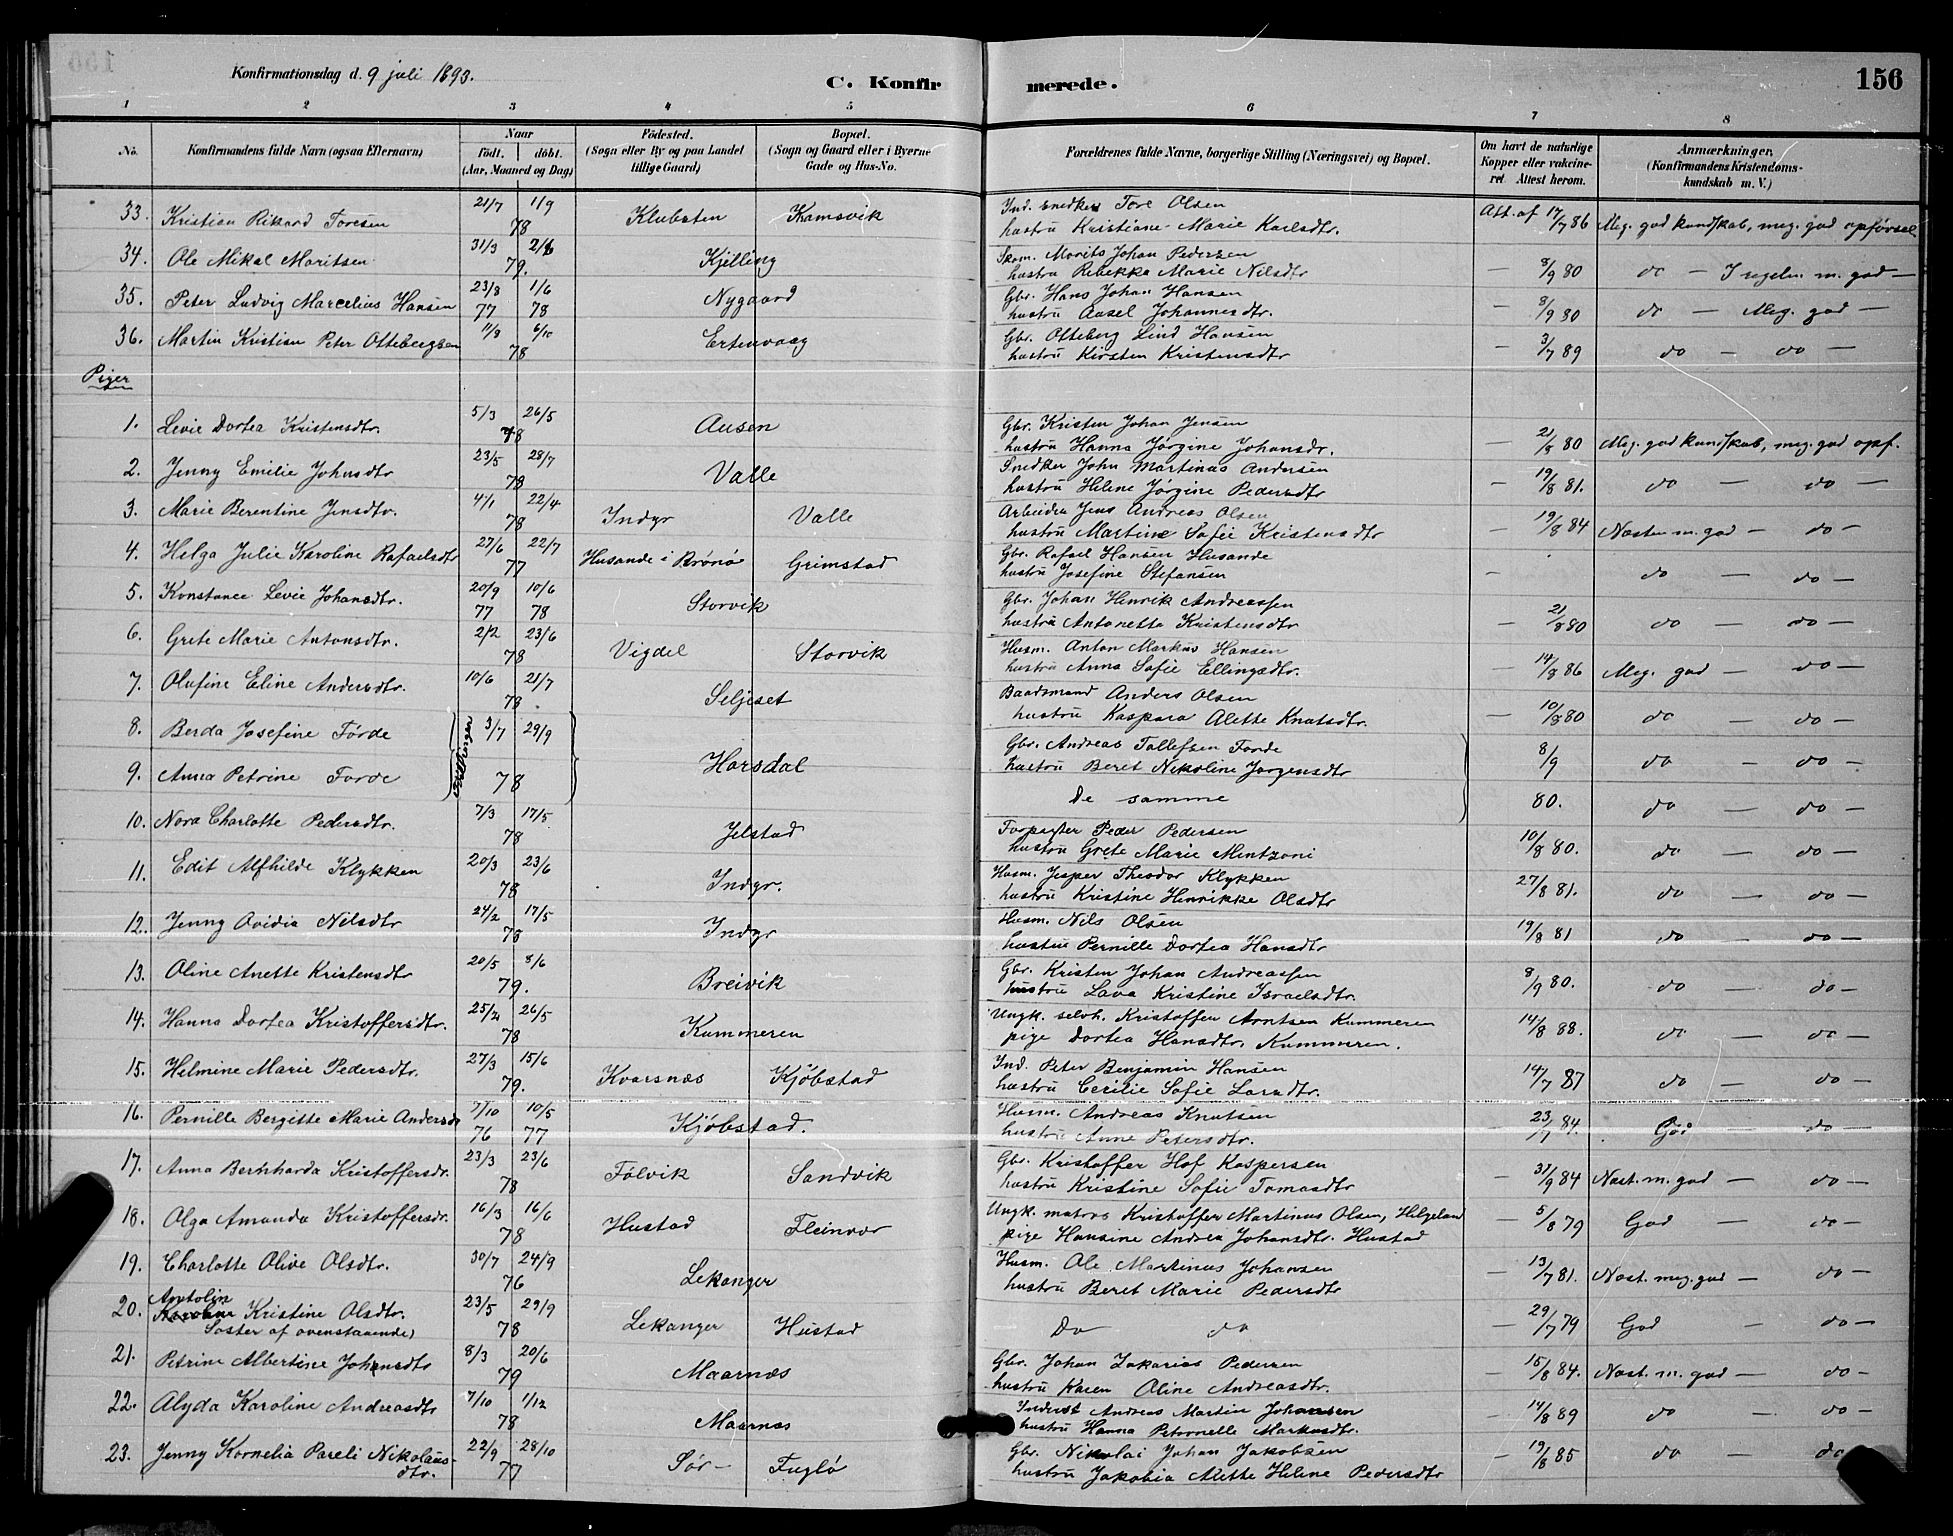 156
Konfirmationsdag d. 9 juli 1893.
C. Konfirmerede.
1 2 3 4 5 6 7 8
No. | Konfirmandens fulde Navn (ogsaa Efternavn) | Naar født. døbt. (Aar, Maaned og Dag) | Fødested. (Sogn eller By og paa Landet tillige Gaard) | Bopæl. (Sogn og Gaard eller i Byerne Gade og Hus-No. | Forældrenes fulde Navne, borgerlige Stilling (Næringsvei) og Bopæl. | Om havt de naturlige Kopper eller vakcineret Attest herom. | Anmærkninger, (Konfirmandens Kristendomskundskab m. V.)
33. Kristian Rikard Toresen 21/7 1/9 78 Klubsten Kamsvik Ind. snedker Tore Olsen hustru Kristiane Marie Karlsdtr. Att. af 17/7 86 Meg. god kundskab, meg. god opførsel
34. Ole Mikal Moritsen 31/3 2/6 79. Kjelling Skom. Morits Johan Pedersen hustru Rebekka Marie Nilsdtr — 8/9 80 do — I regelen m. god —
35. Peter Ludvig Marcelius Hansen 23/8 77 1/6 78 Nygaard Gbr. Hans Johan Hansen hustru Ausel Johannesdtr. — 8/9 80 do — Meg. god —
36. Martin Kristian Peter Ottebergsen 11/8 6/10 78 Ertenvaag Gbr. Otteberg Lind Hansen hustru Kirsten Kristensdtr — 3/7 89 do — do —
Piger
1. Levie Dortea Kristensdtr. 5/3 26/5 78 Ausen Gbr. Kristen Johan Jensen hustru Hanna Jørgine Johansdr. — 21/8 80 Meg. god kundskab, meg. god opf.
2. Jenny Emilie Johnsdtr 23/5 28/7 78 Valle Snedker John Martinus Andersen hustru Helene Jørgine Pedersdtr — 19/8 81. do — do —
3. Marie Berentine Jensdtr. 4/1 22/4 78 Indyr Valle Arbeider Jens Andreas Olsen hustru Martine Sofie Kristensdtr — 19/8 84 Næsten m. god — do —
4. Helga Julie Karoline Rafaelsdtr 27/6 22/7 77 Husande i Brønø Grimstad Gbr. Rafael Hansen Husande hustru Josefine Stefansen — do — do —
5. Konstance Levie Johansdtr. 20/9 77 10/6 78 Storvik Gbr. Johan Henrik Andreassen hustru Antonette Kristensdtr — 21/8 80 do — do —
6. Grete Marie Antonsdtr. 2/2 23/6 78 Vigdel Storvik Husm. Anton Markus Hansen hustru Anna Sofie Ellingsdtr. — 14/8 86 Meg. god — do —
7. Olufine Eline Andersdtr. 10/6 21/7 78 Seljeset Baadsmand Anders Olsen hustru Kaspara Alette Knutsdtr. — 10/8 80 do — do —
8. Berda Josefine Førde 3/7 29/9 Horsdal Gbr. Andreas Tollefsen Førde hustru Beret Nikoline Jørgensdtr 8/9 do — do —
9. Anna Petrine Førde 78 De samme 80. do — do —
10. Nora Charlotte Pedersdtr. 7/3 17/5 78 Jelstad Forpagter Peder Pedersen hustru Grete Marie Mentzoni 10/8 80. do — do —
11. Edit Alfhilde Klykken 20/3 23/6 78 Indyr. Husm. Jesper Theodor Klykken hustru Kristine Henrikke Olsdtr 27/8 81. do — do —
12. Jenny Ovidia Nilsdtr 24/2 17/5 78 Indyr Husm. Nils Olsen hustru Pernille Dortea Hansdtr 19/8 81 do — do —
13. Oline Anette Kristensdtr 20/5 8/6 79. Breivik Gbr. Kristen Johan Andreassen hustru Lava Kristine Israelsdtr. 8/9 80. do — do —
14. Hanna Dortea Kristoffersdtr. 25/2 26/5 78 Kummeren Ungk. selvh. Kristoffer Arntsen Kummeren pige Dortea Hansdtr. Kummeren. 14/8 88. do — do —
15. Helmine Marie Pedersdtr. 27/3 15/6 79. Kvarsnæs Kjøbstad Ind. Peter Benjamin Hansen hustru Cecilie Sofie Larsdtr. 14/7 87 do — do —
16. Pernille Bergitte Marie Andersdr 7/10 76 10/5 77 Kjøbstad. Husm. Andreas Knutsen hustru Anne Petersdtr. — 23/7 84. God — do —
17. Anna Bernharda Kristoffersdr. 23/3 23/6 78 Følvik Sandvik Gbr. Kristoffer Hof Kaspersen hustru Kristine Sofie Tomasdtr — 31/9 84 Næst. m. god — do —
18. Olga Amanda Kristoffersdr. 16/3 16/6 78 Hustad Fleinvær Ungk. matros Kristoffer Martinus Olsen, Helgeland pige Hansine Andrea Johansdtr. Hustad — 5/8 79 God — do —
19. Charlotte Olive Olsdtr. 30/7 24/9 76 Lekanger Husm. Ole Martinus Johansen hustru Beret Marie Pedersdtr — 13/7 81. Næst. meg. god — do —
20. Antolin Kristine Olsdtr. Søster af ovenstaaende) 23/5 29/9 78 Lekanger Hustad Do do — 29/7 79 God — do —
21. Petrine Albertine Johansdtr 8/3 20/6 79 Maarnæs Gbr. Johan Zakarias Pedersen hustru Karen Oline Andreasdtr. — 15/8 84. Næst. m. god — do —
22. Alyda Karoline Andreasdtr 7/10 1/12 78 Maarnæs Inderst Andreas Martin Johansen hustru Hanna Petornelle Markusdtr. — 14/8 89 do — do —
23. Jenny Kornelia Pareli Nikolausdtr. 22/9 28/10 77 Sør-Fuglø Gbr. Nikolai Johan Jakobsen hustru Jakobia Alette Helene Pedersdtr — 19/8 85 do — do